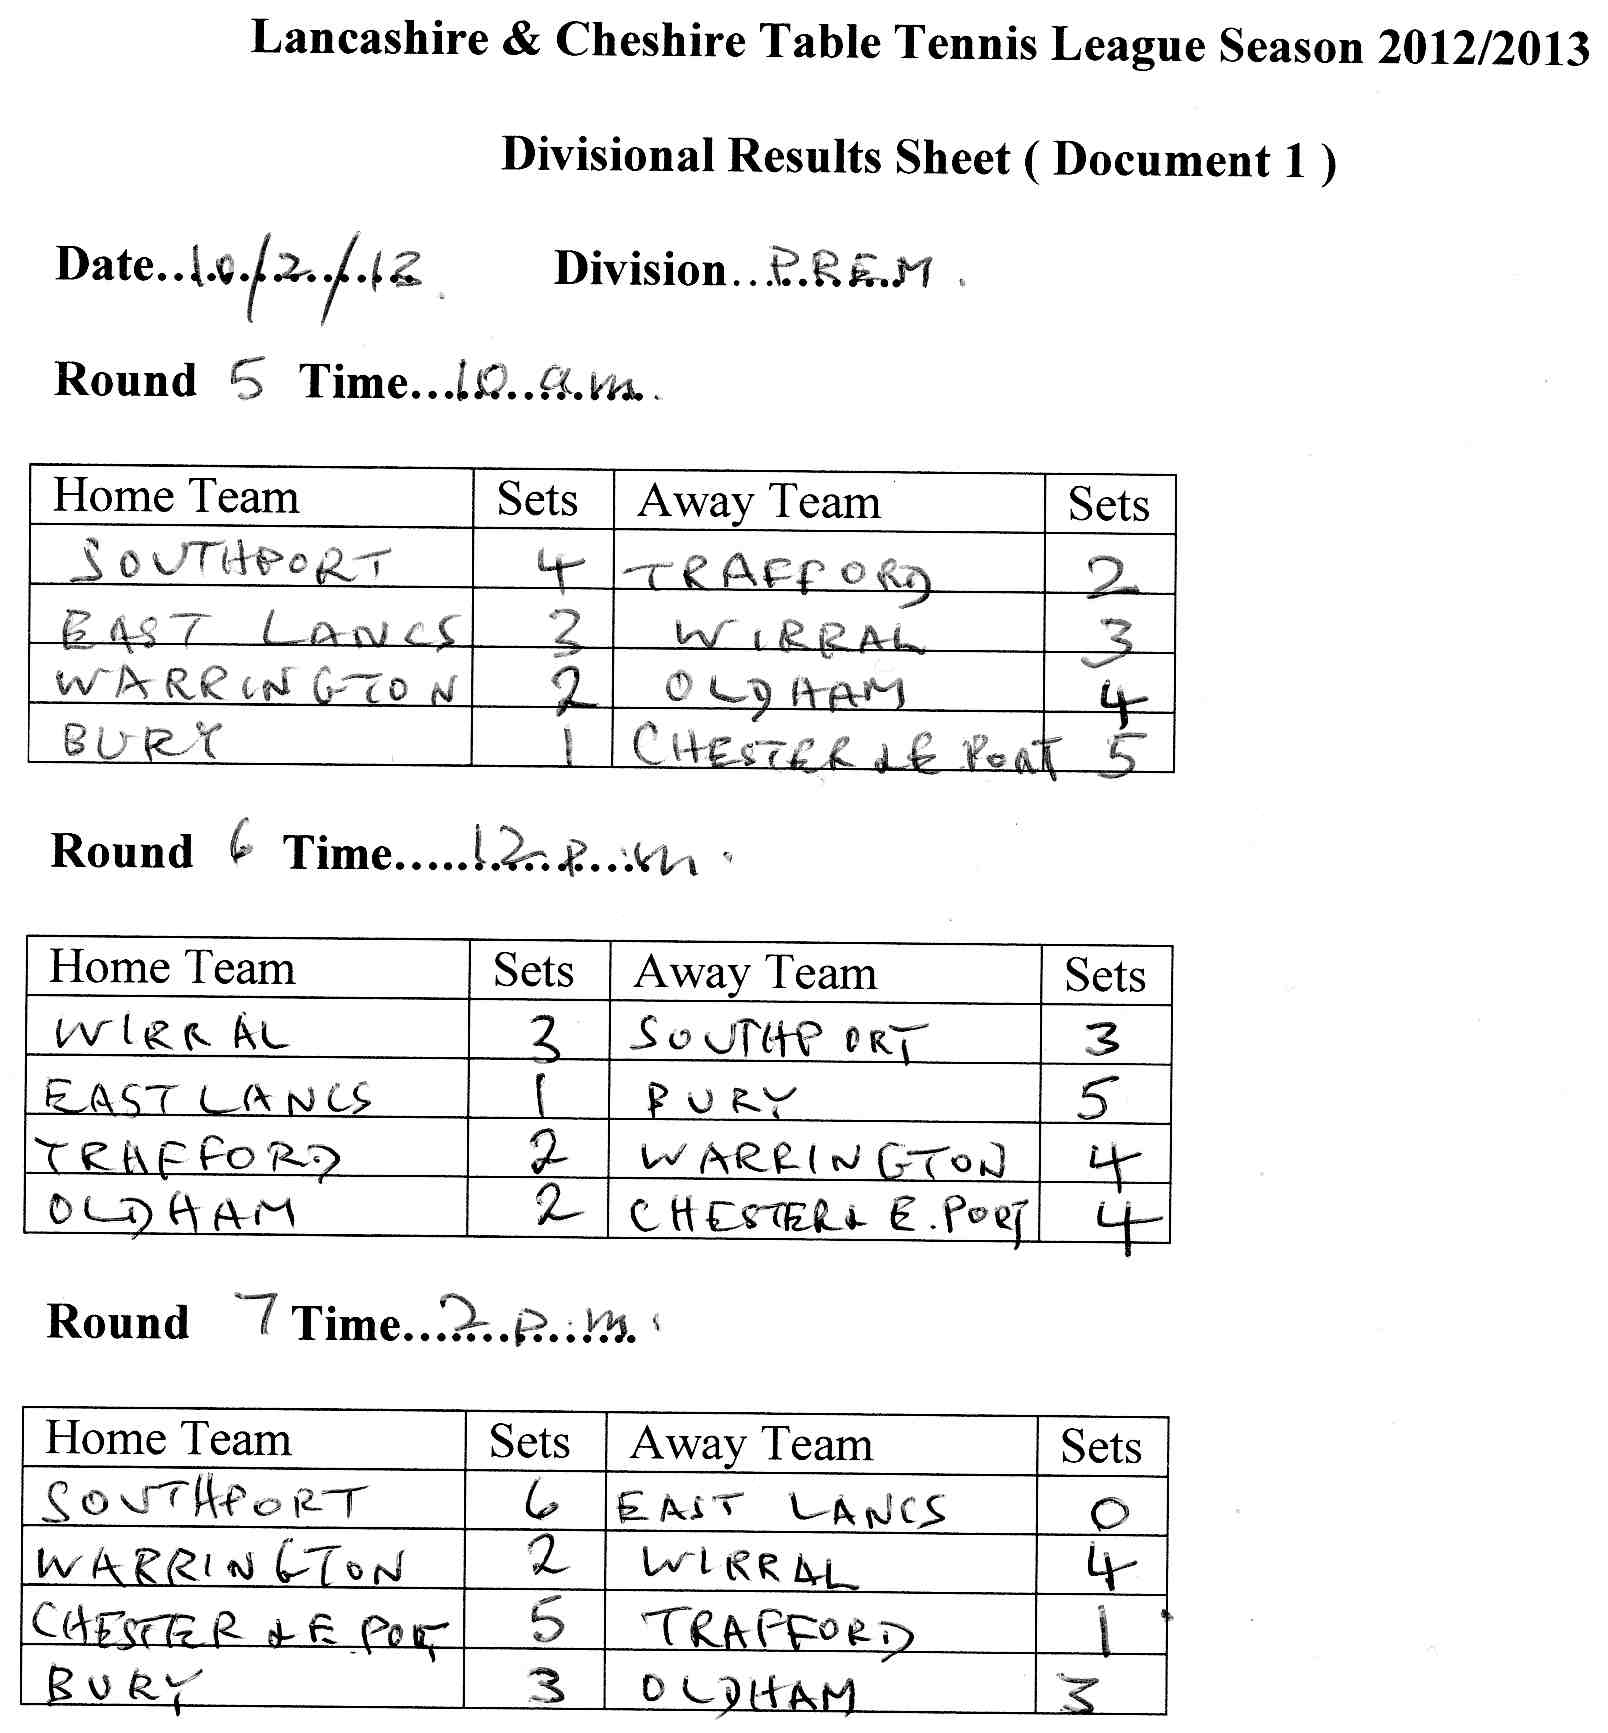 Lancashire & Cheshire Table Tennis League Season 2012/2013
Divisional Results Sheet ( Document 1 )
Date...10/2/13. Division...PREM.
Round 5 Time...10 a.m.
Home Team Sets Away Team Sets
SOUTHPORT 4 TRAFFORD 2
EAST LANCS 3 WIRRAL 3
WARRINGTON 2 OLDHAM 4
BURY 1 CHESTER & E PORT 5
Round 6 Time.....12 p.m.
Home Team Sets Away Team Sets
WIRRAL 3 SOUTHPORT 3
EAST LANCS 1 BURY 5
TRAFFORD 2 WARRINGTON 4
OLDHAM 2 CHESTER & E. PORT 4
Round 7 Time...2 p.m.
Home Team Sets Away Team Sets
SOUTHPORT 6 EAST LANCS 0
WARRINGTON 2 WIRRAL 4
CHESTER & E PORT 5 TRAFFORD 1
BURY 3 OLDHAM 3